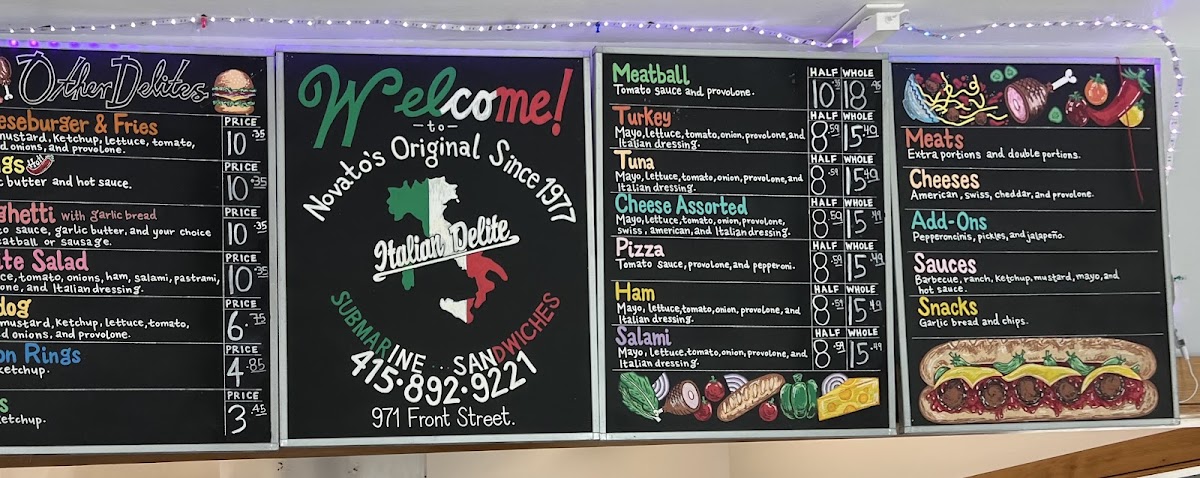 Other Delites
eseburger & Fries
mustard, Ketchup, lettuce, tomato,
d onions, and provolone.
PRICE
10.35
ngs Hot!
c butter and hot sauce.
PRICE
10.35
ghetti with garlic bread
to sauce, garlic butter, and your choice
eatball or sausage.
PRICE
10.35
te Salad
ce, tomato, onions, ham, salami, pastrami,
one, and Italian dressing.
PRICE
10.35
dog
mustard, Ketchup, lettuce, tomato,
d onions, and provolone.
PRICE
6.75
on Rings
ketchup.
PRICE
4.85
s
ketchup.
PRICE
3.45
Welcome!
-to-
Novato's Original Since 1977
Italian Delite
SUBMARINE...SANDWICHES
415·892·9221
971 Front Street.
Meatball
Tomato sauce and provolone.
HALF WHOLE
10 18
Turkey
Mayo, lettuce, tomato, onion, provolone, and
Italian dressing.
HALF WHOLE
8.59 15.49
Tuna
Mayo, lettuce, tomato, onion, provolone, and
Italian dressing.
HALF WHOLE
8.59 15.49
Cheese Assorted
Mayo, lettuce, tomato, onion, provolone,
swiss, american, and Italian dressing.
HALF WHOLE
8.59 15.49
Pizza
Tomato sauce, provolone, and pepperoni.
HALF WHOLE
8.59 15.49
Ham
Mayo, lettuce, tomato, onion, provolone, and
Italian dressing.
HALF WHOLE
8.59 15.49
Salami
Mayo, lettuce, tomato, onion, provolone, and
Italian dressing.
HALF WHOLE
8.59 15.49
Meats
Extra portions and double portions.
Cheeses
American, swiss, cheddar, and provolone.
Add-Ons
Pepperoncinis, pickles, and jalapeño.
Sauces
Barbecue, ranch, ketchup, mustard, mayo, and
hot sauce.
Snacks
Garlic bread and chips.